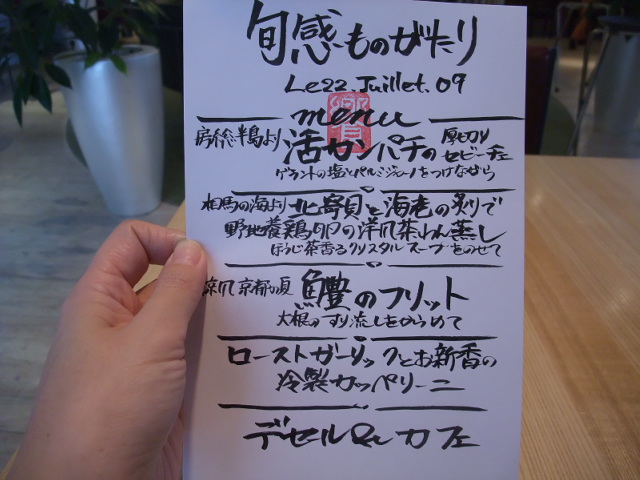 旬感ものがたり
Le22.Juillet.09
menu
房総半島より 活カンパチの 厚切りセビーチェ
ゲラントの塩とパルミジャーノをつけながら
相馬の海より 北寄貝と海老の炙りで
野地養鶏卵の洋風茶わん蒸し
ほうじ茶香るクリスタルスープをのせて
京風 京都の夏 鱧のフリット
大根のすり流しをからめて
ローストガーリックとお新香の
冷製カッペリーニ
デセル&カフェ